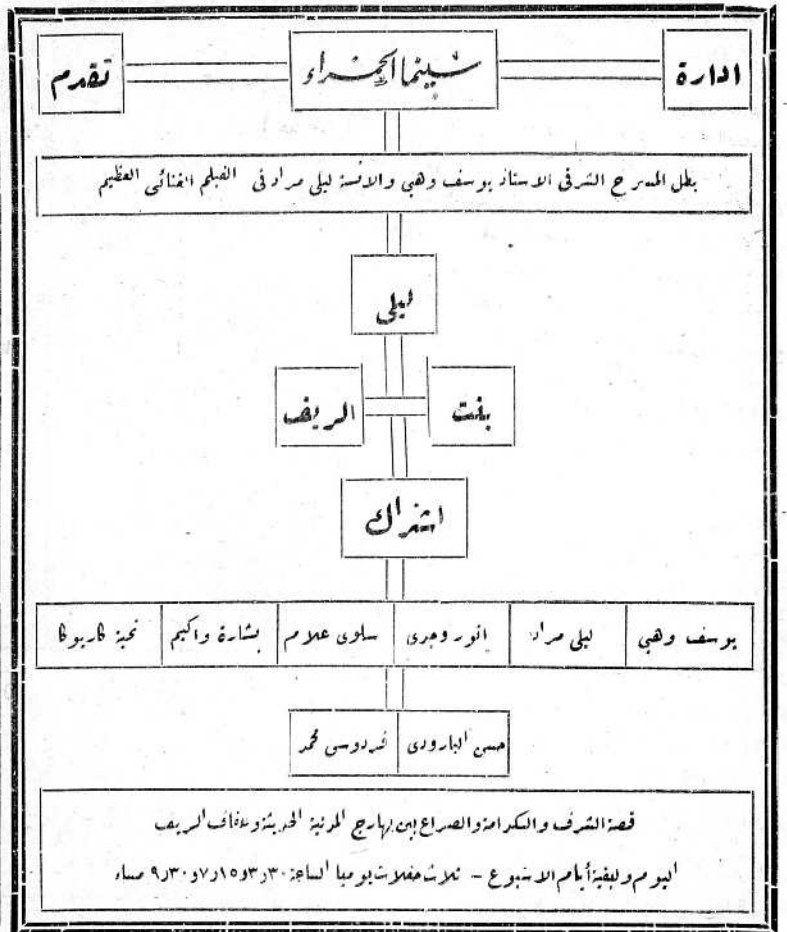 ادارة سينما الحمراء تقدم
بطل المسرح الشرقى الاستاذ يوسف وهبى والآنسة ليلى مراد فى الفيلم الغنائى العظيم
ليلى
بنت الريف
اشتراك
يوسف وهبى ليلى مراد انور وجدى سلوى علام بشارة واكيم تحية كاريوكا
حسن البارودى فردوس محمد
قصة الشرف والكرامة والصراع بين بهارج المدنية الحديثة وعفاف الريف
اليوم ولبقية أيام الاسبوع - ثلاث حفلات يوميا الساعة ٣٠ر٣ و١٥ر٧ و٣٠ر٩ مساء